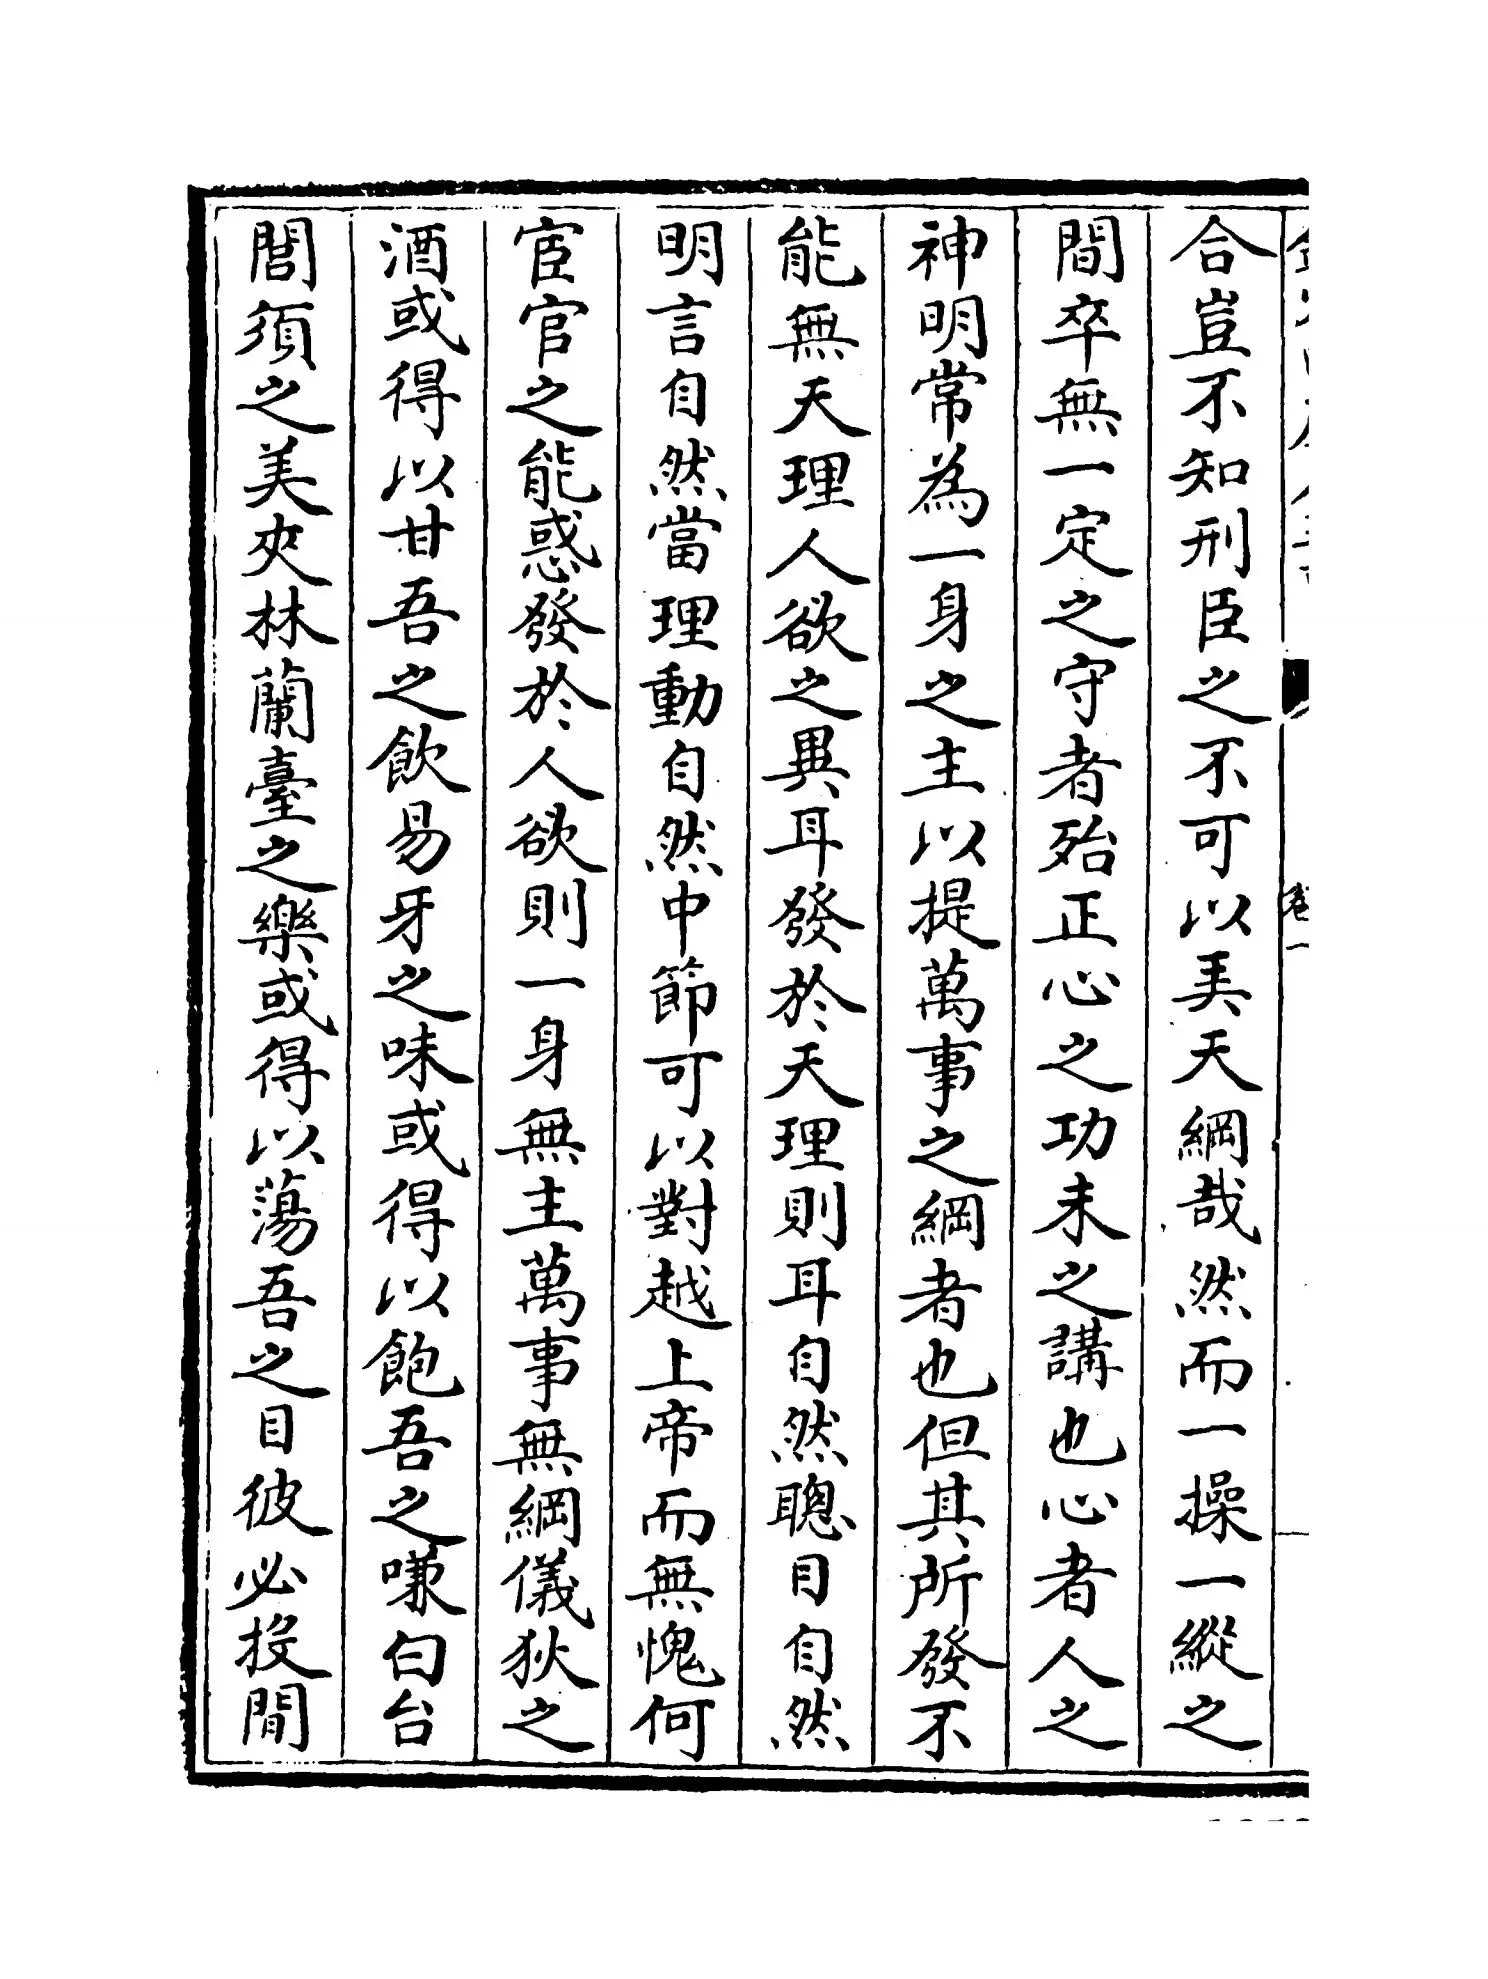 合豈不知刑臣之不可以美天綱哉然而一操一縱之
間卒無一定之守者殆正心之功未之講也心者人之
神明常為一身之主以提萬事之綱者也但其所發不
能無天理人欲之異耳發於天理則耳自然聰目自然
明言自然當理動自然中節可以對越上帝而無愧何
宦官之能惑發於人欲則一身無主萬事無綱儀狄之
酒或得以甘吾之飲易牙之味或得以飽吾之嗛白台
閭須之美夾林蘭臺之樂或得以蕩吾之目彼必投間